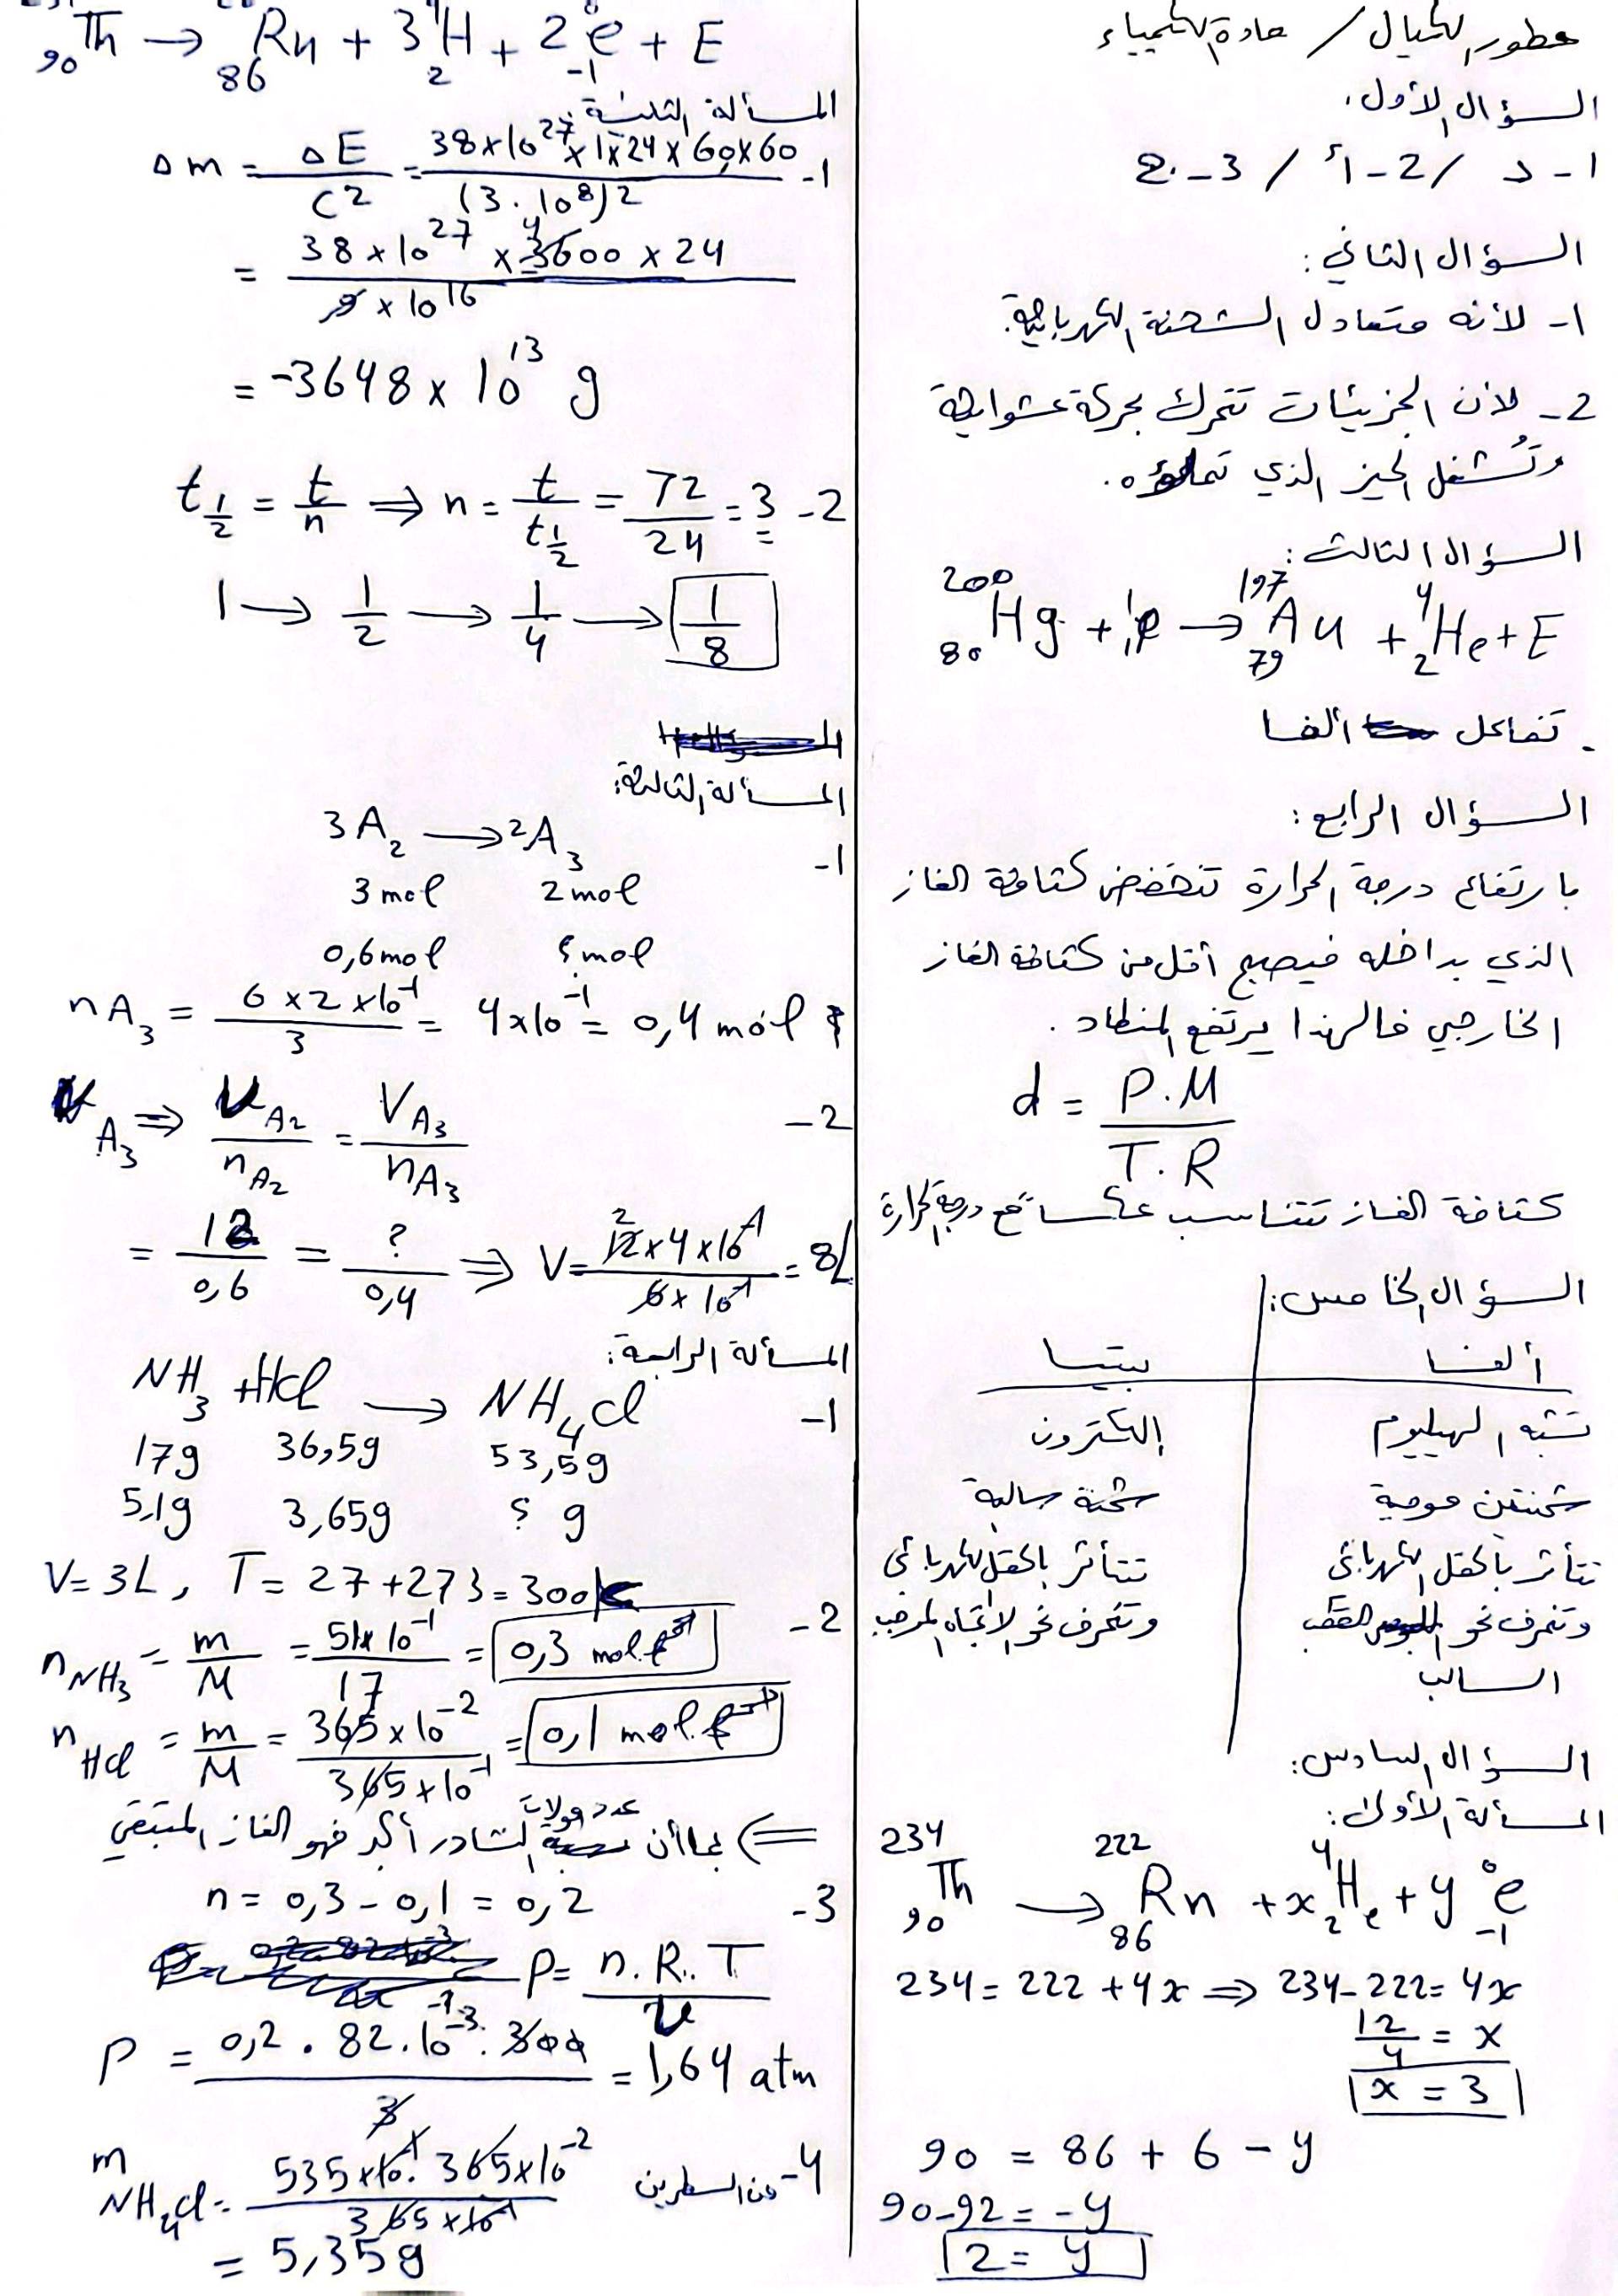 عطور الخيال / مادة الكيمياء
السؤال الأول.
1- د / 2- أ / 3- ج
السؤال الثاني:
1- لأنه متعادل الشحنة الكهربائية.
2- لأن الجزيئات تتحرك بحركة عشوائية
وتُشغل الحيز الذي تملؤه.
السؤال الثالث:
²⁰⁰₈₀Hg + ¹₁p → ¹⁹⁷₇₉Au + ⁴₂He + E
. تفاعل ألفا
السؤال الرابع:
بارتفاع درجة الحرارة تنخفض كثافة الغاز
الذي بداخله فيصبح أقل من كثافة الغاز
الخارجي فالهذا يرتفع المنطاد .
d = P.M / T.R
كثافة الغاز تتناسب عكساً مع درجة الحرارة
السؤال الخامس:
ألفا | بيتا
تشبه الهيليوم | إلكترون
شحنتين موجبة | شحنة سالبة
تتأثر بالحقل الكهربائي | تتأثر بالحقل الكهربائي
وتنحرف نحو القطب | وتنحرف نحو الاتجاه الموجب
السالب
السؤال السادس:
المسألة الأولى:
²³⁴₉₀Th → ²²²₈₆Rn + x ⁴₂He + y ⁰₋₁e
234 = 222 + 4x ⇒ 234 - 222 = 4x
12/4 = x
x = 3
90 = 86 + 6 - y
90-92 = -y
2 = y
₉₀Th → ₈₆Rn + 3 ⁴₂H + 2 ⁰₋₁e + E
المسألة الثانية:
1- Δm = ΔE / C² = 38×10²⁷ × 1×24×60×60 / (3.10⁸)²
= 38×10²⁷ × 3600 × 24 / 9×10¹⁶
= -3648 × 10¹³ g
2- t½ = t/n ⇒ n = t / t½ = 72/24 = 3
1 → 1/2 → 1/4 → 1/8
المسألة الثالثة:
1- 3A₂ → 2A₃
3 mol 2 mol
0,6 mol ؟ mol
nA₃ = 6×2×10⁻¹ / 3 = 4×10⁻¹ = 0,4 mol
2- V A₃ ⇒ V A₂ / n A₂ = V A₃ / n A₃
= 12 / 0,6 = ? / 0,4 ⇒ V = 12×4×10⁻¹ / 6×10⁻¹ = 8L
المسألة الرابعة:
1- NH₃ + HCl → NH₄Cl
17g 36,5g 53,5g
5,1g 3,65g ؟ g
V= 3L , T= 27+273=300K
2- n NH₃ = m/M = 51×10⁻¹ / 17 = 0,3 mol
n HCl = m/M = 365×10⁻² / 365×10⁻¹ = 0,1 mol
⇐ بما أن عدد مولات النشادر أكبر فهو الغاز المتبقي
3- n = 0,3 - 0,1 = 0,2
P = n.R.T / V
P = 0,2 . 82.10⁻³ . 300 / 3 = 1,64 atm
4- من السطرين m NH₄Cl = 535×10⁻¹ . 365×10⁻² / 365×10⁻¹
= 5,35g